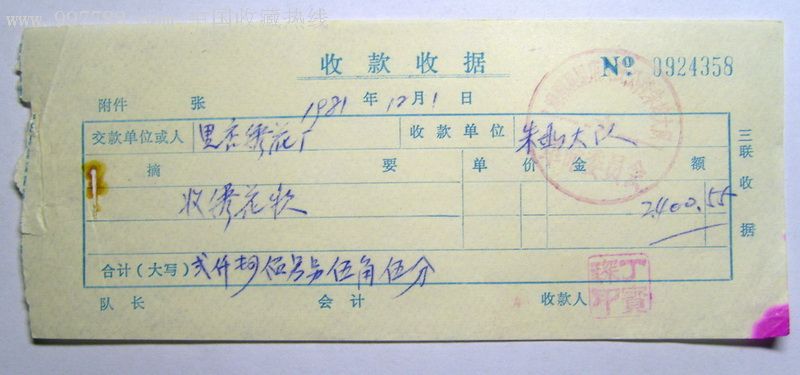 www.997788.com 中国收藏热线
收款收据 Nº 0924358
附件 张 1981年12月1日
交款单位或人 里杏绣花厂 收款单位 朱勘大队
三联收据
摘要 单价 金额
收绣花款 2400.55
合计(大写) 弍仟肆佰另另伍角伍分
队长 会计 收款人